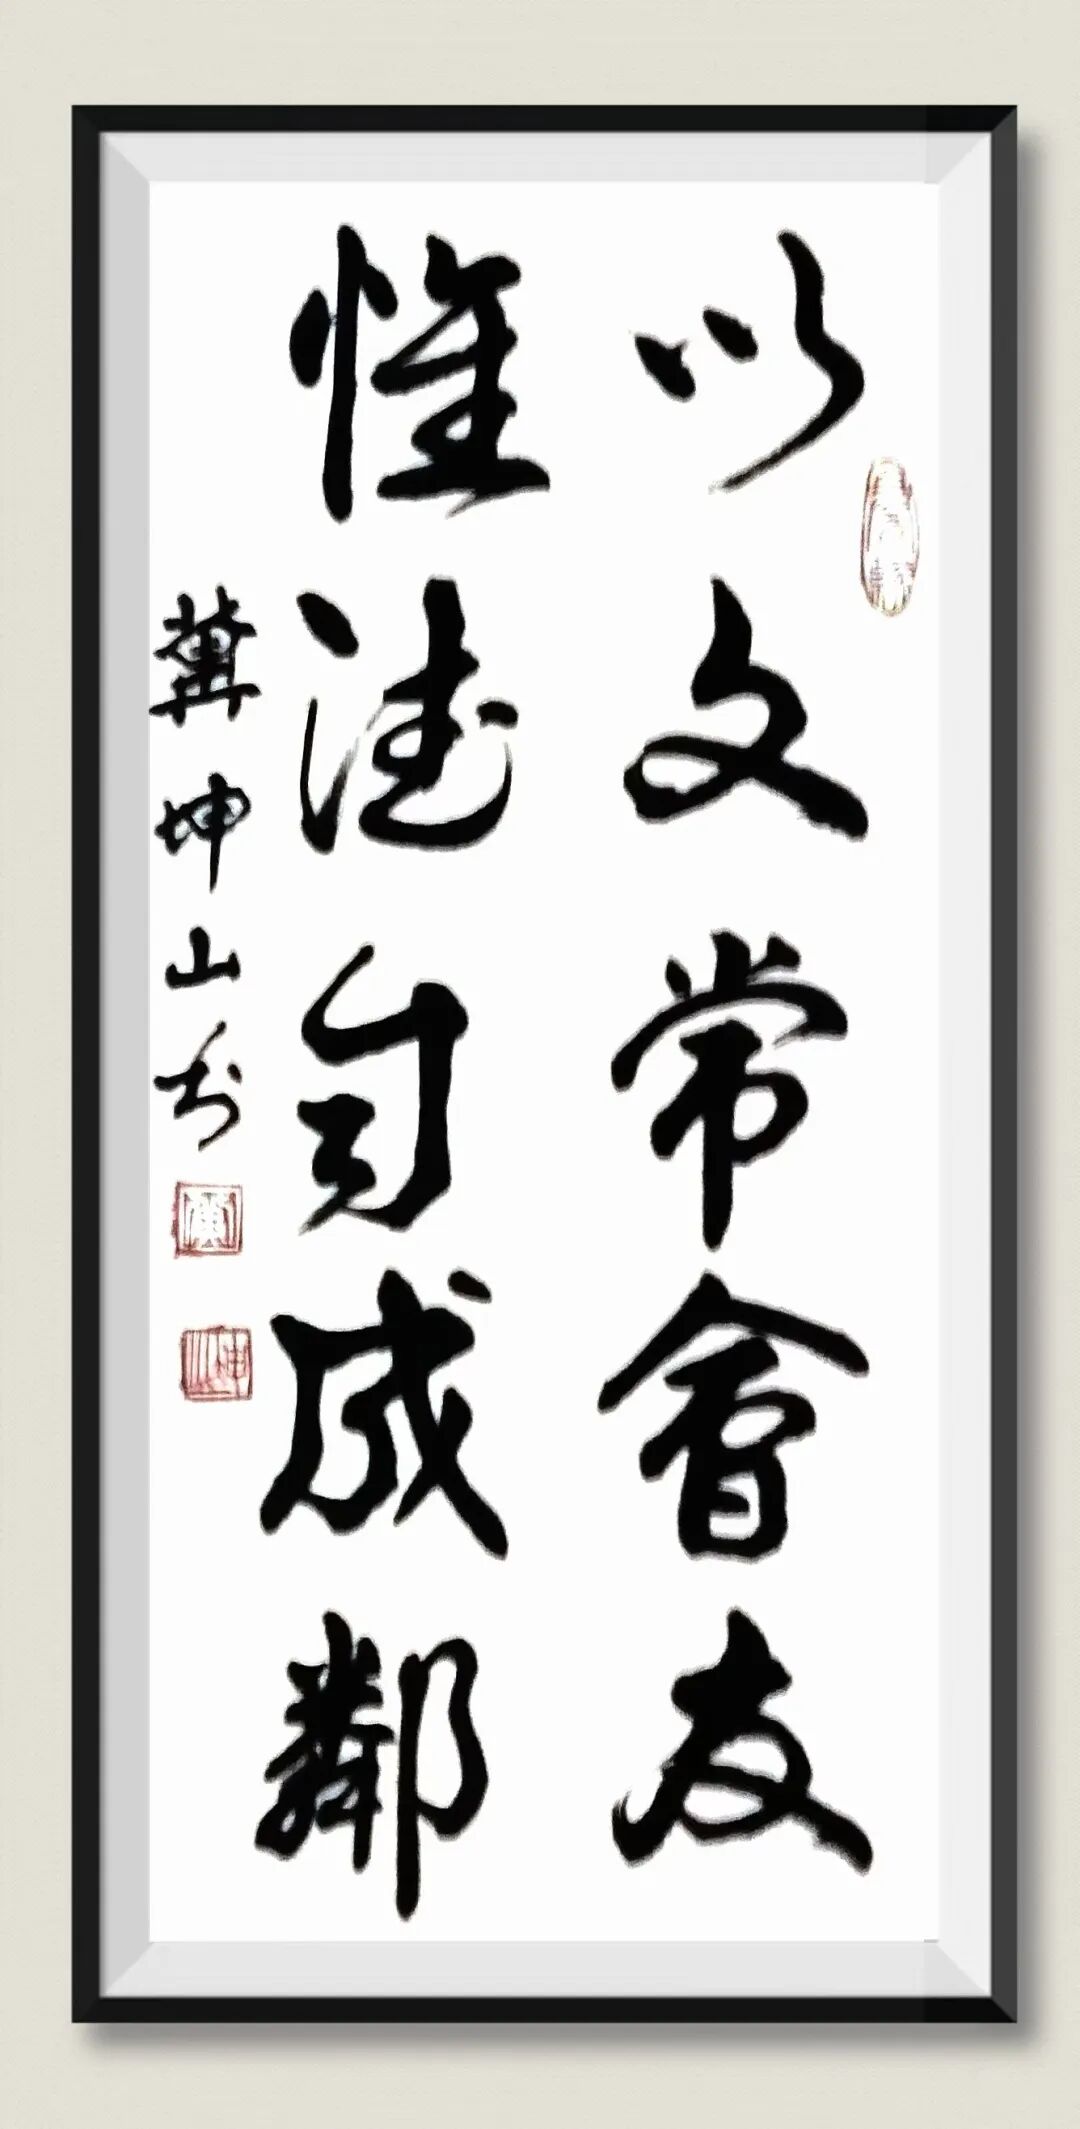 以文常會友
惟德自成鄰
冀坤山書